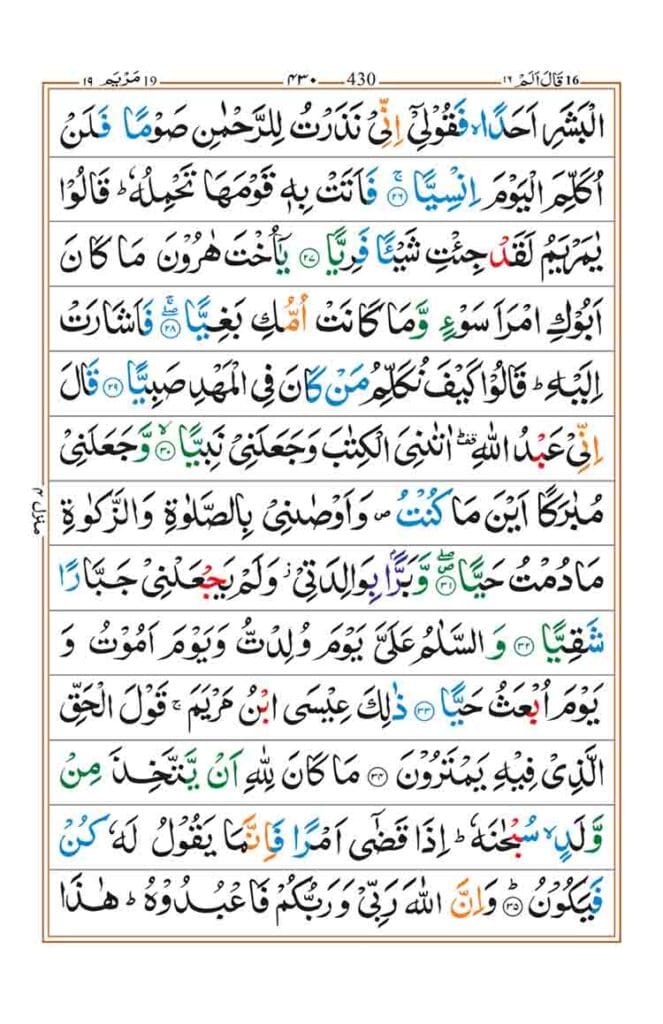 ١٩ مَرْيَم 19 ٤٣٠ 430 ١٦ قَالَ اَلَمْ 16
الْبَشَرِ اَحَدًاۙ فَقُوْلِيْۤ اِنِّيْ نَذَرْتُ لِلرَّحْمٰنِ صَوْمًا فَلَنْ
اُكَلِّمَ الْيَوْمَ اِنْسِيًّاۚ ﴿٢٦﴾ فَاَتَتْ بِهٖ قَوْمَهَا تَحْمِلُهٗؕ قَالُوْا
يٰمَرْيَمُ لَقَدْ جِئْتِ شَيْـًٔا فَرِيًّا ﴿٢٧﴾ يٰۤاُخْتَ هٰرُوْنَ مَا كَانَ
اَبُوْكِ امْرَاَ سَوْءٍ وَّمَا كَانَتْ اُمُّكِ بَغِيًّاۖۚ ﴿٢٨﴾ فَاَشَارَتْ
اِلَيْهِؕ قَالُوْا كَيْفَ نُكَلِّمُ مَنْ كَانَ فِي الْمَهْدِ صَبِيًّا ﴿٢٩﴾ قَالَ
اِنِّيْ عَبْدُ اللّٰهِؕ۫ اٰتٰىنِيَ الْكِتٰبَ وَجَعَلَنِيْ نَبِيًّاۙ ﴿٣٠﴾ وَّجَعَلَنِيْ
مُبٰرَكًا اَيْنَ مَا كُنْتُ۪ وَاَوْصٰىنِيْ بِالصَّلٰوةِ وَالزَّكٰوةِ
مَا دُمْتُ حَيًّا۪ۖ ﴿٣١﴾ وَّبَرًّۢا بِوَالِدَتِيْؗ وَلَمْ يَجْعَلْنِيْ جَبَّارًا
شَقِيًّا ﴿٣٢﴾ وَالسَّلٰمُ عَلَيَّ يَوْمَ وُلِدْتُّ وَيَوْمَ اَمُوْتُ وَ
يَوْمَ اُبْعَثُ حَيًّا ﴿٣٣﴾ ذٰلِكَ عِيْسَى ابْنُ مَرْيَمَۚ قَوْلَ الْحَقِّ
الَّذِيْ فِيْهِ يَمْتَرُوْنَ ﴿٣٤﴾ مَا كَانَ لِلّٰهِ اَنْ يَّتَّخِذَ مِنْ
وَّلَدٍۙ سُبْحٰنَهٗؕ اِذَا قَضٰۤى اَمْرًا فَاِنَّمَا يَقُوْلُ لَهٗ كُنْ
فَيَكُوْنُؕ ﴿٣٥﴾ وَاِنَّ اللّٰهَ رَبِّيْ وَرَبُّكُمْ فَاعْبُدُوْهُؕ هٰذَا
منزل ٤